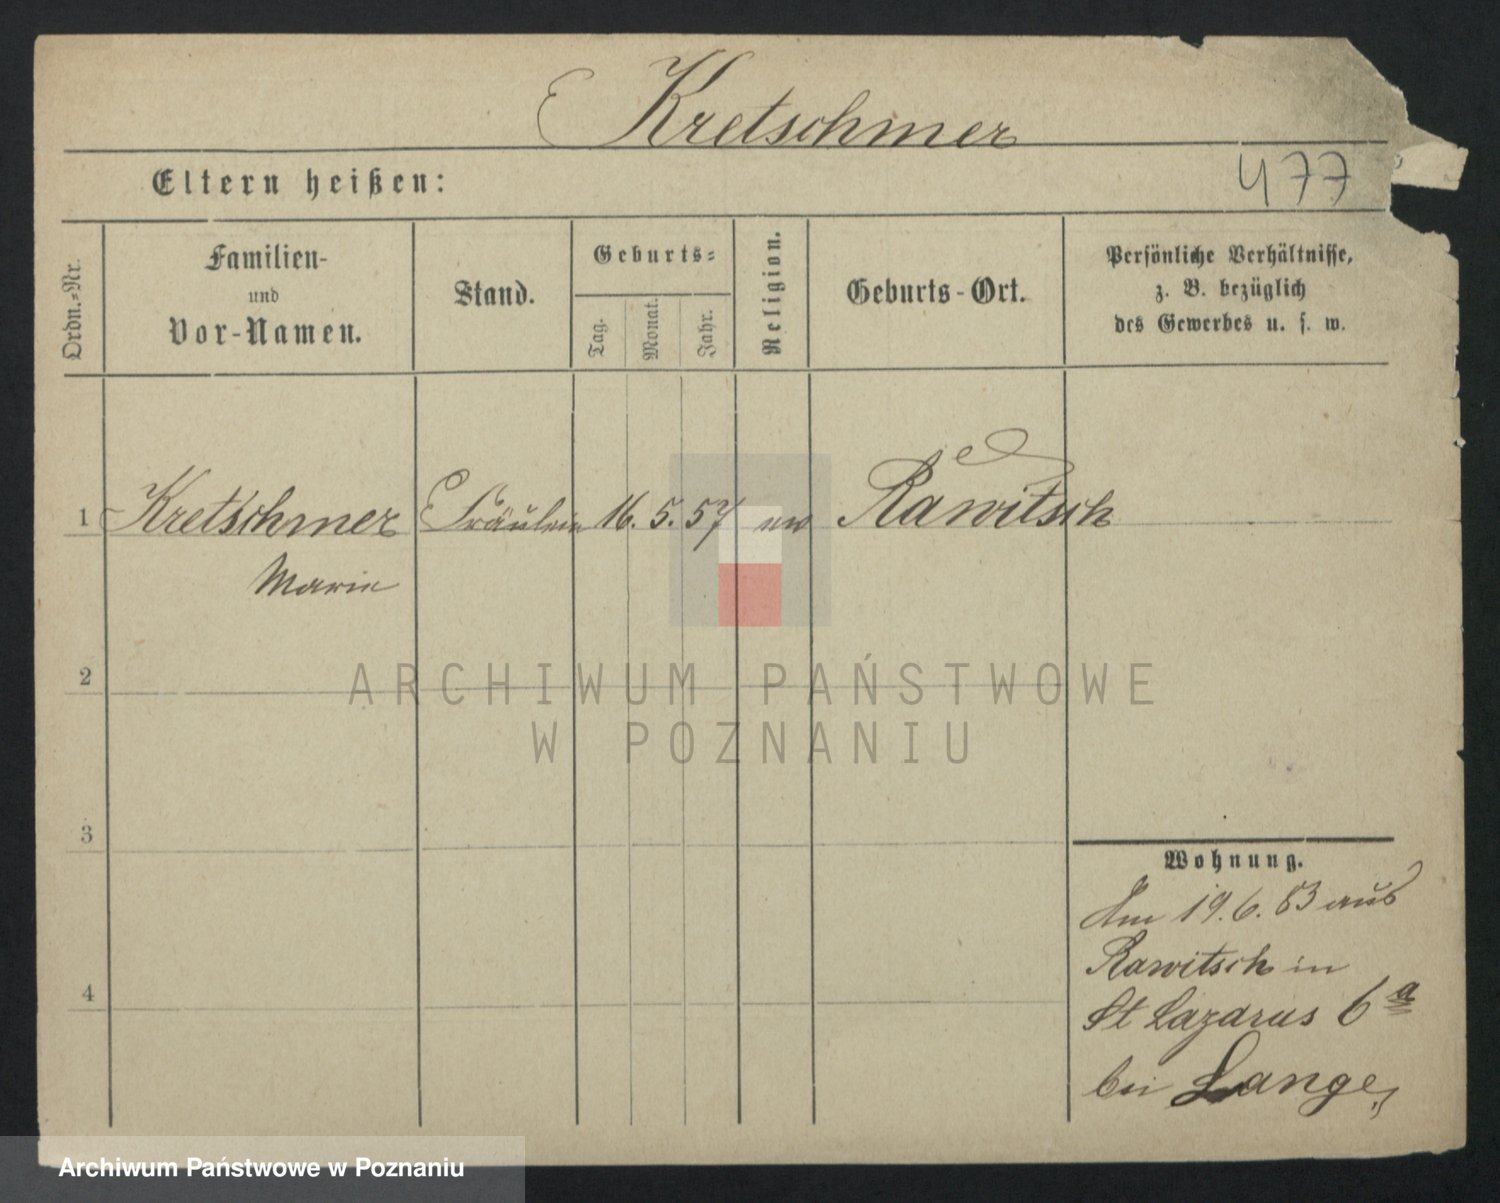 Kretschmer
Eltern heißen:
477
Ordn.-Nr.
Familien-
und
Vor-Namen.
Stand.
Geburts-
Tag.
Monat.
Jahr.
Religion.
Geburts-Ort.
Persönliche Verhältnisse,
z. B. bezüglich
des Gewerbes u. s. w.
1 Kretschmer Fräulein 16. 5. 57 ev Rawitsch
Marie
2
ARCHIWUM PAŃSTWOWE
W POZNANIU
3
Wohnung.
Am 19. 6. 83 aus
Rawitsch in
4
St Lazarus 6a
bei Lange,
Archiwum Państwowe w Poznaniu